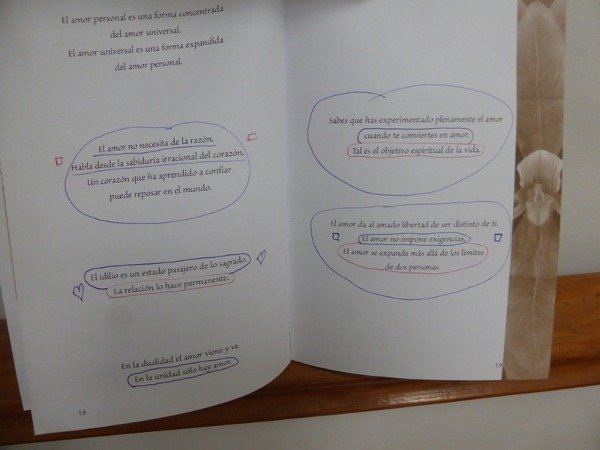 El amor personal es una forma concentrada
del amor universal.
El amor universal es una forma expandida
del amor personal.
El amor no necesita de la razón.
Habla desde la sabiduría irracional del corazón.
Un corazón que ha aprendido a confiar
puede reposar en el mundo.
El idilio es un estado pasajero de lo sagrado.
La relación lo hace permanente.
En la dualidad el amor viene y va.
En la unidad sólo hay amor.
18
Sabes que has experimentado plenamente el amor
cuando te conviertes en amor.
Tal es el objetivo espiritual de la vida.
El amor da al amado libertad de ser distinto de ti.
El amor no impone exigencias.
El amor se expande más allá de los límites
de dos personas.
19